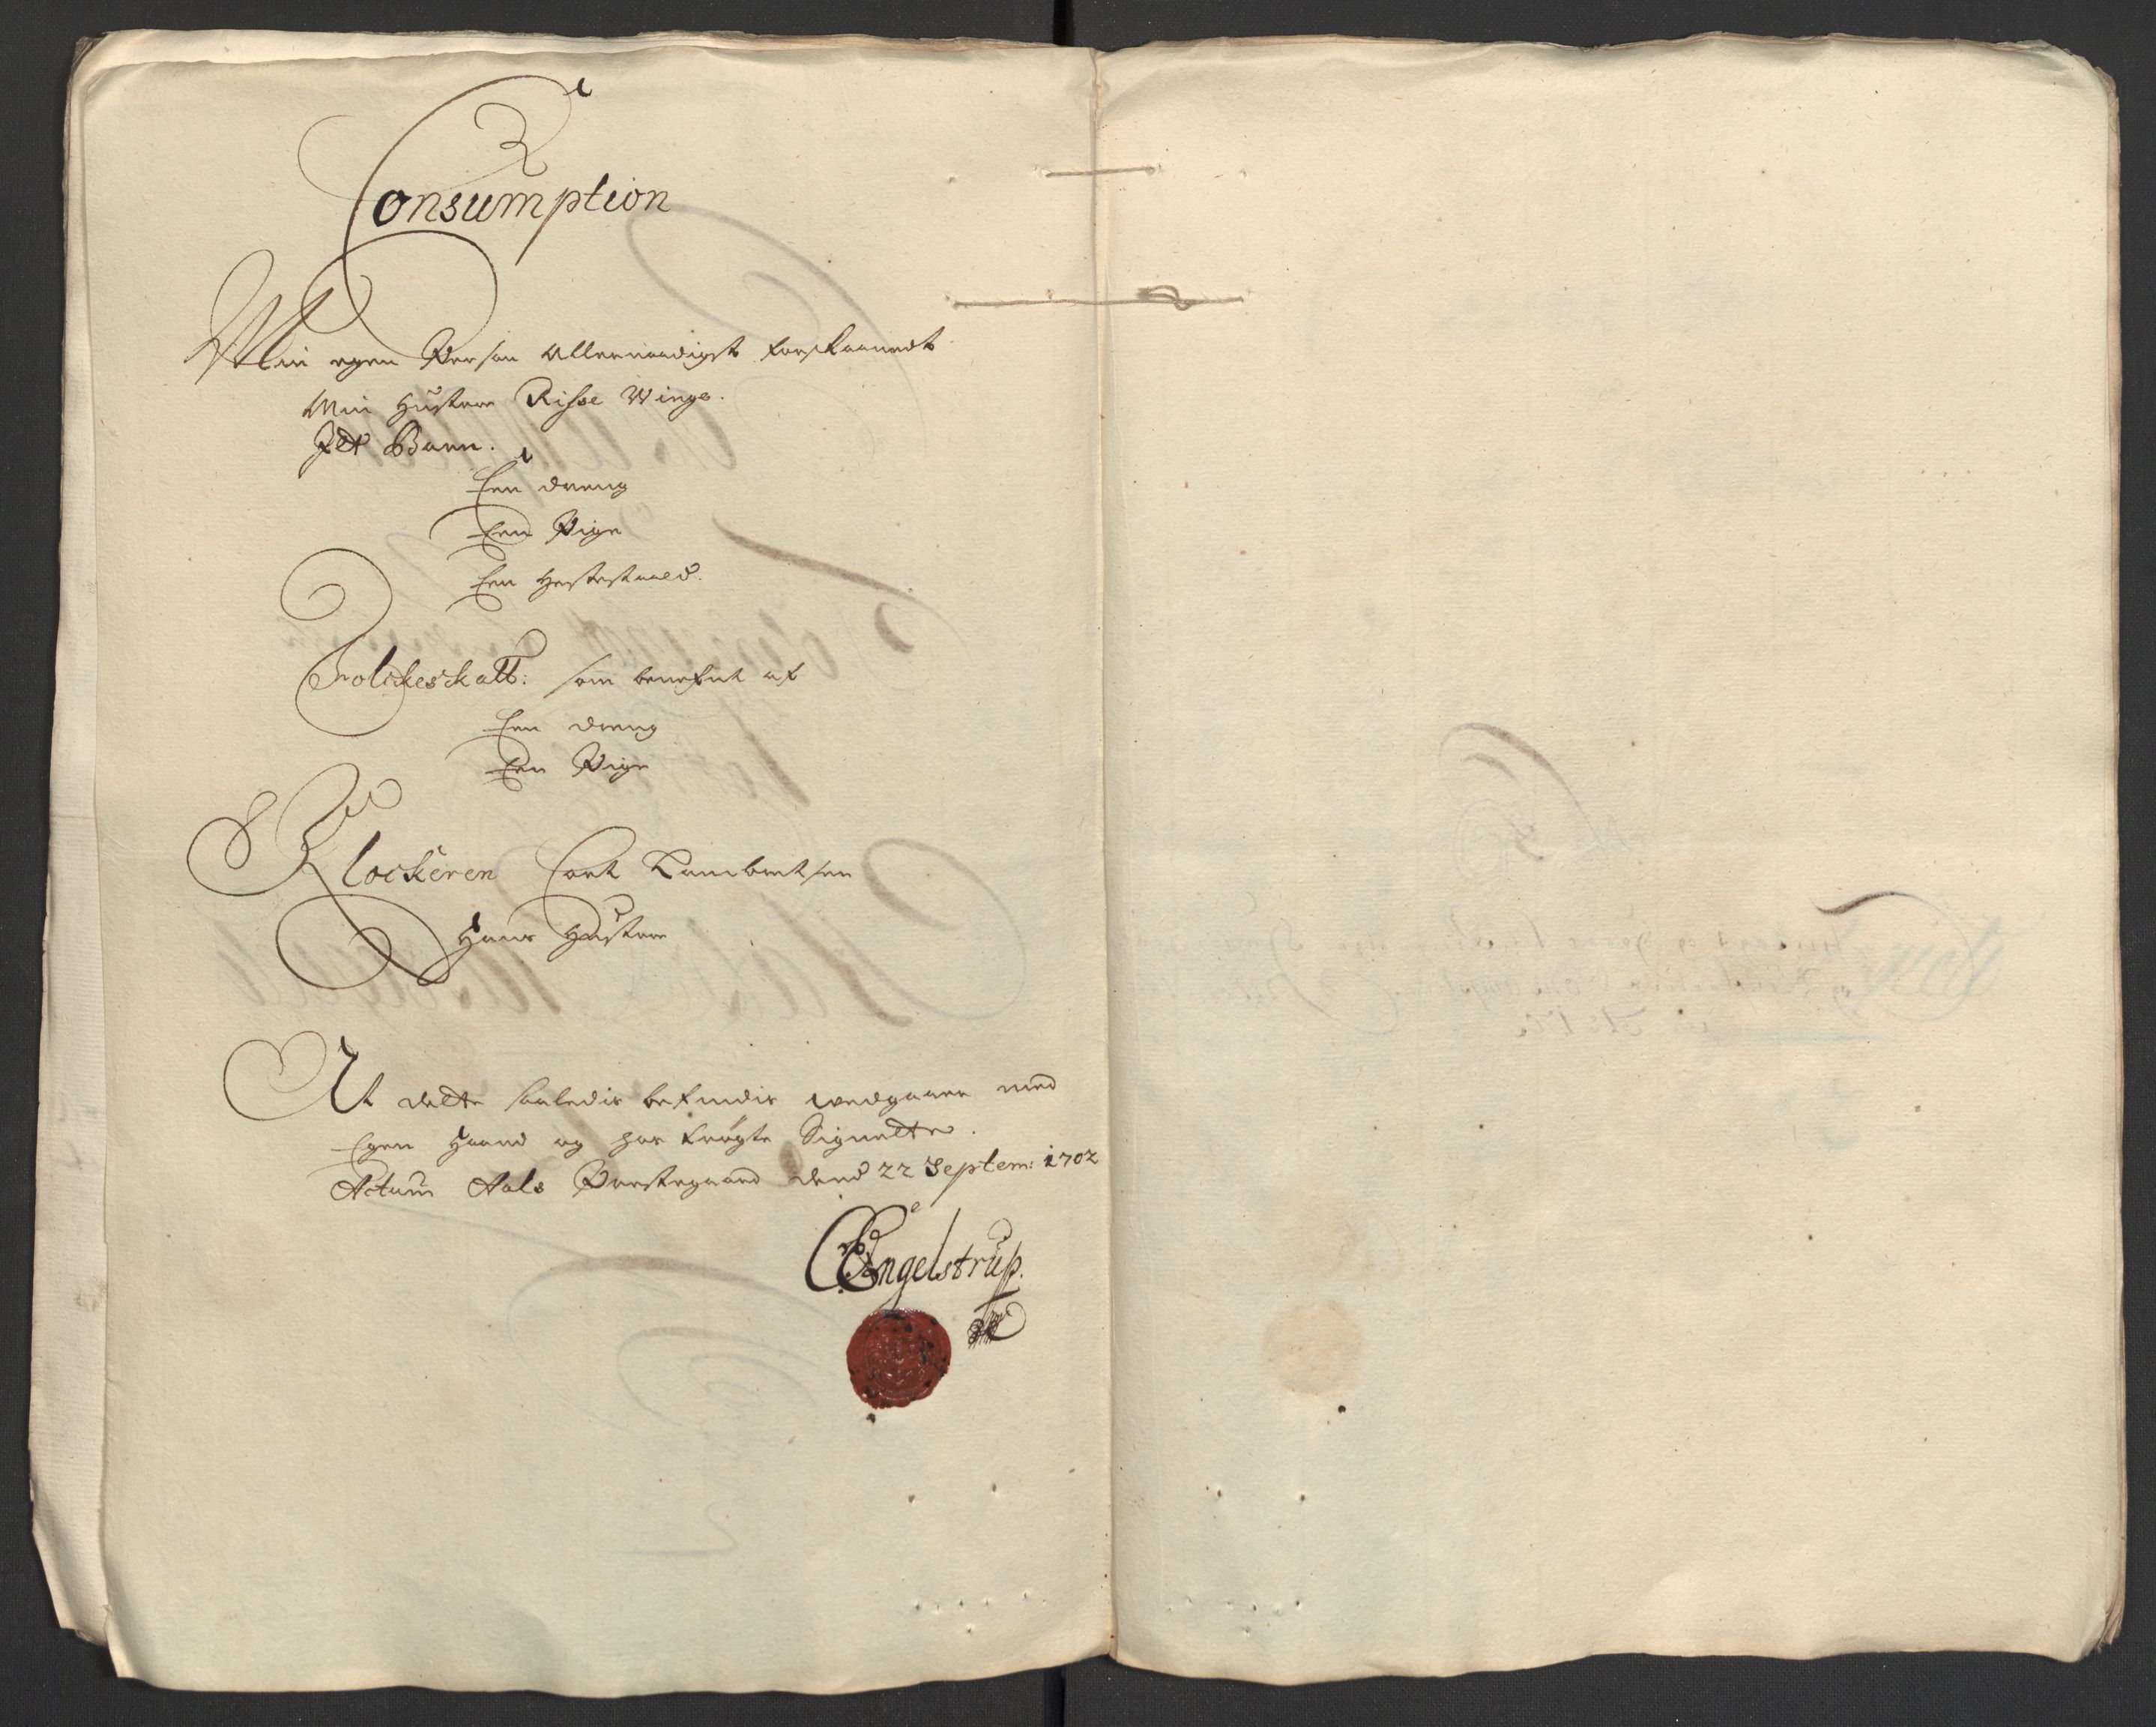 Consumption
Min egen Person Allernaadigst forskaanedt
Min Hustroe Risse Wings.
Jtt Barn.
Een dreng
Een Pige
Een Hestestald.
Folckeskatt: som benefnt af
Een dreng
Een Pige
Klockeren Cort Lambretsen
Hans Hustroe
At dette saaledis befindis wedgaar med
Egen Haand og hos trögte Signette.
Actum Aals Prestegaard dend 22 Septem: 1702
CEngelstrup.